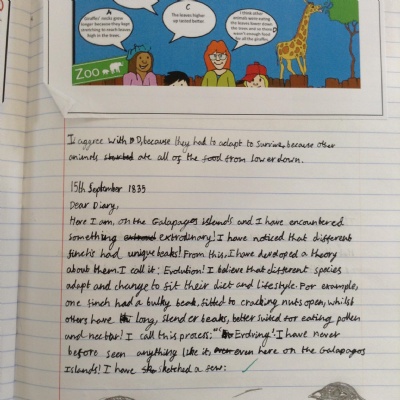 A
Giraffes' necks grew longer because they kept stretching to reach leaves high in the trees.
C
The leaves higher up tasted better.
I think other animals were eating the leaves lower down the trees and so there wasn't enough food for all the giraffes.
Zoo
I aggree with D, because they had to adapt to survive, because other
animals ate all of the food from lower down.
15th September 1835
Dear Diary,
Here I am, on the Galapagos islands and I have encountered
something extrordinary! I have noticed that different
finchs had unique beaks! From this, I have devloped a theory
about them. I call it: Evolution! I believe that different species
adapt and change to fit their diet and lifestyle. For example,
one finch had a bulky beak, fitted to cracking nuts open, whilst
others have long, slender beaks, better suited for eating pollen
and nectar! I call this process: "Evolving'. I have never
before seen anything like it, even here on the Galapagos
Islands! I have sketched a few: